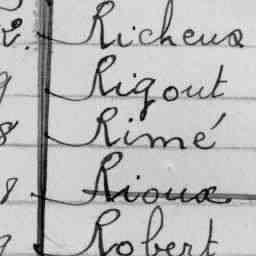 Richeux
Rigout
Rimé
Rioux
Robert